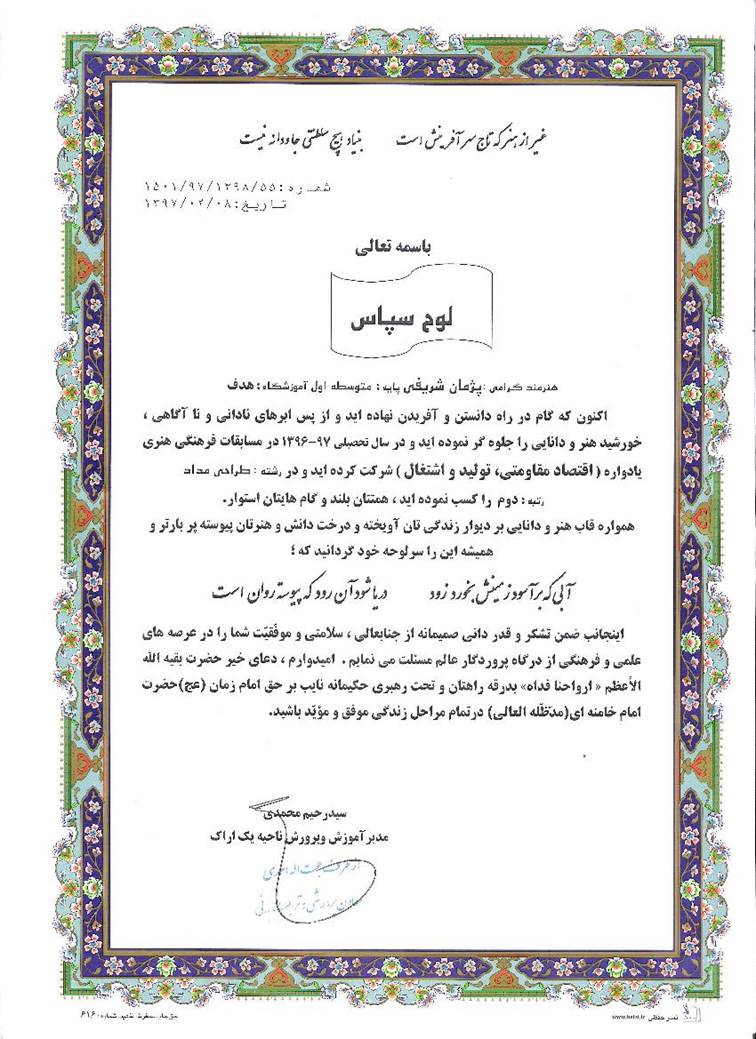 غیر از هنر که تاج سر آفرینش است بنیاد هیچ سلطنتی جاودانه نیست
شماره: ۱۵۰۱/۹۷/۱۳۹۸/۵۵
تاریخ: ۱۳۹۷/۰۲/۰۸
باسمه تعالی
لوح سپاس
هنرمند گرامی: پژمان شریفی پایه: متوسطه اول آموزشگاه: هدف
اکنون که گام در راه دانستن و آفریدن نهاده اید و از پس ابرهای نادانی و نا آگاهی ،
خورشید هنر و دانایی را جلوه گر نموده اید و در سال تحصیلی ۹۷-۱۳۹۶ در مسابقات فرهنگی هنری
یادواره ( اقتصاد مقاومتی، تولید و اشتغال ) شرکت کرده اید و در رشته : طراحی مداد
رتبه : دوم را کسب نموده اید ، همتتان بلند و گام هایتان استوار.
همواره قاب هنر و دانایی بر دیوار زندگی تان آویخته و درخت دانش و هنرتان پیوسته پر بارتر و
همیشه این را سرلوحه خود گردانید که ؛
آبی که بر آسود زمینش بخورد زود دریا شود آن رود که پیوسته روان است
اینجانب ضمن تشکر و قدر دانی صمیمانه از جنابعالی ، سلامتی و موفقیّت شما را در عرصه های
علمی و فرهنگی از درگاه پروردگار عالم مسئلت می نمایم . امیدوارم ، دعای خیر حضرت بقیه الله
الأعظم « ارواحنا فداه» بدرقه راهتان و تحت رهبری حکیمانه نایب بر حق امام زمان (عج)حضرت
امام خامنه ای(مدّظّله العالی) درتمام مراحل زندگی موفق و مؤیّد باشید.
سیدرحیم محمدی
مدیر آموزش وپرورش ناحیه یک اراک
از طرف حجت اله
نشر حافظ www.hafez.ir
شماره: ۶۱۶